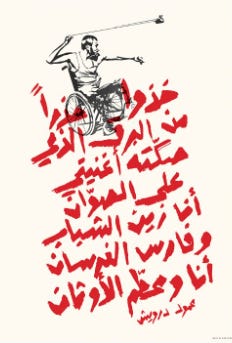 خذوا حذراً
من البرق الذي
صكّته أغنيتي
على الصوّان
أنا زين الشباب
وفارس الفرسان
أنا ومحطّم الأوثان
محمود درويش